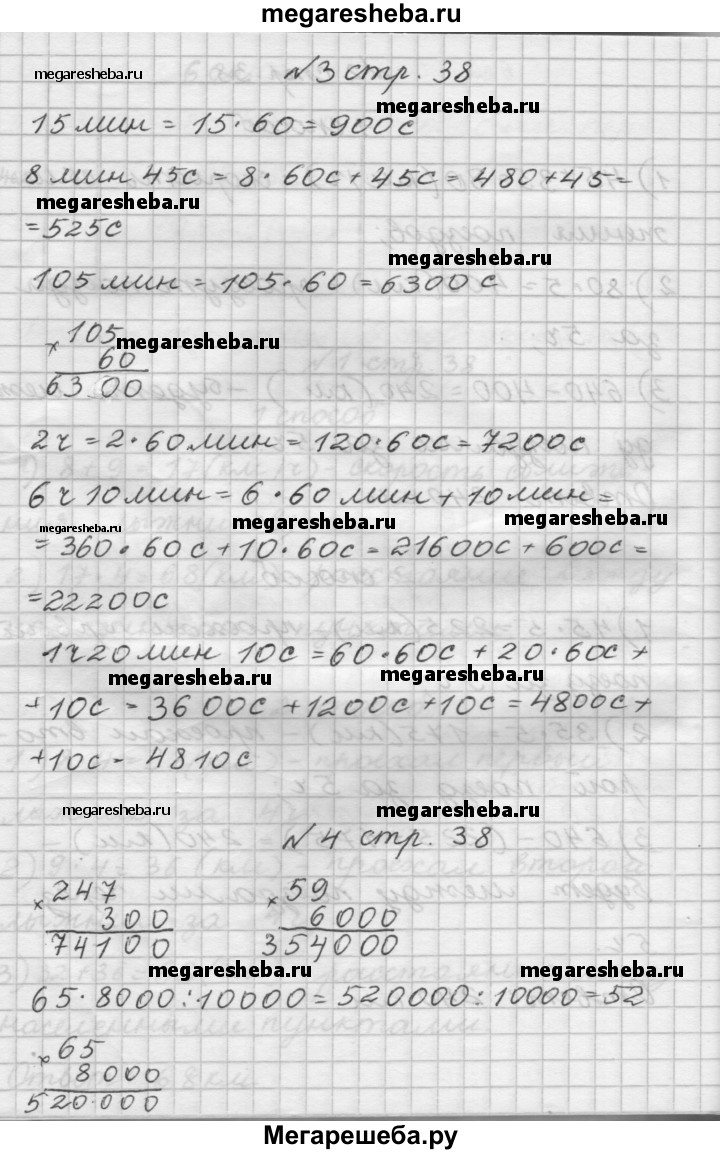 megaresheba.ru
megaresheba.ru
№3 стр. 38
megaresheba.ru
15 мин = 15·60 = 900 с
8 мин 45с = 8·60с + 45с = 480+45 =
megaresheba.ru
= 525с
megaresheba.ru
105 мин = 105·60 = 6300 с
× 105
megaresheba.ru
60
6300
2ч = 2·60 мин = 120·60с = 7200с
6ч 10 мин = 6·60 мин + 10 мин =
megaresheba.ru
megaresheba.ru
megaresheba.ru
= 360·60с + 10·60с = 21600с + 600с =
= 22200с
1ч 20 мин 10с = 60·60с + 20·60с +
megaresheba.ru
megaresheba.ru
+10с = 3600с + 1200с + 10с = 4800с +
+10с = 4810с
megaresheba.ru
megaresheba.ru
№4 стр. 38
× 247
300
74100
× 59
6000
354000
megaresheba.ru
megaresheba.ru
65·8000:10000 = 520000:10000 = 52
× 65
8000
520000
Мегарешеба.ру